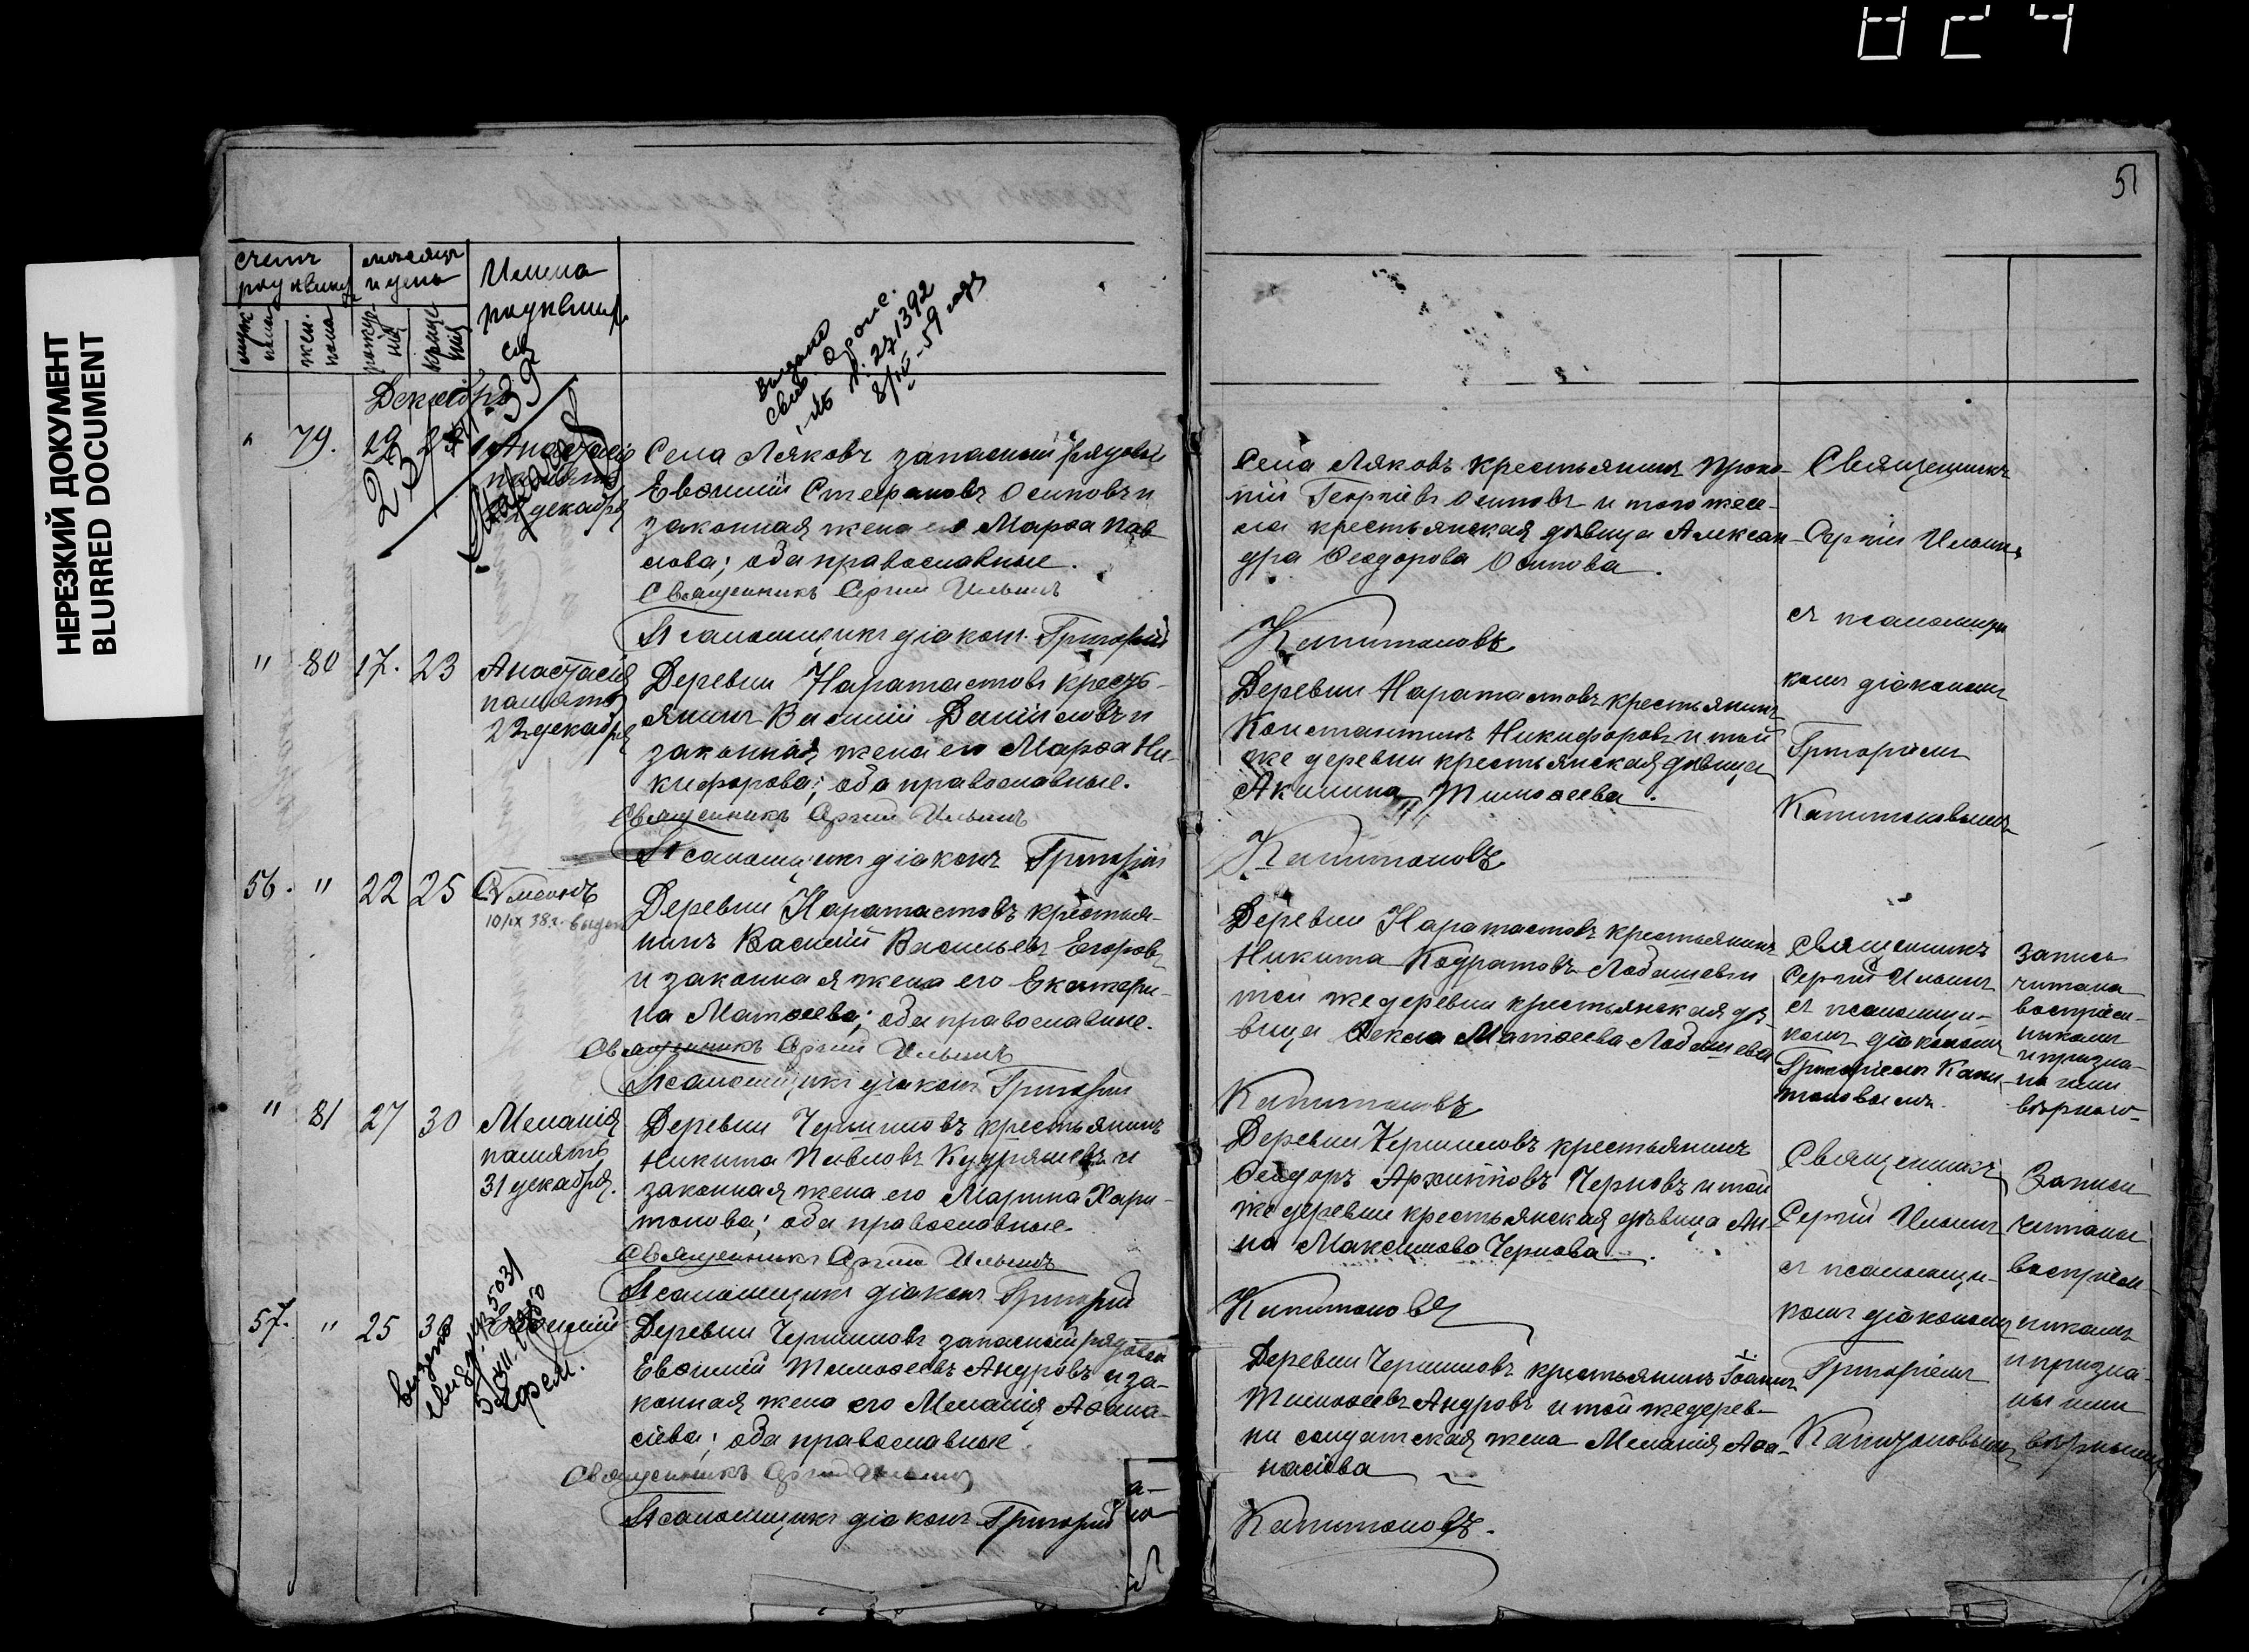 824
НЕРЕЗКИЙ ДОКУМЕНТ
BLURRED DOCUMENT
51
счетъ родившихся
мѣсяцъ и день
Имена родившихся
муж. пола
жен. пола
рожденія
крещенія
Декабрь
выдано
№ 271392
" 79. 19 Анастасія
память
22 декабря
Села Ляковъ запасный рядовой
Евѳимій Стефановъ Осиповъ и
законная жена его Марѳа Пав-
лова; оба православные.
Священникъ Сергій Ильинъ
Псаломщикъ діаконъ Григорій
Села Ляковъ крестьянинъ Проко-
пій Георгіевъ Осиповъ и того же се-
ла крестьянская дѣвица Алексан-
дра Ѳеодорова Осипова.
Капитоновъ
Священникъ
Сергій Ильинъ
съ псаломщи-
комъ діакономъ
Григоріемъ
Капитоновымъ
" 80 17. 23 Анастасія
память
22 декабря
Деревни Наратастовъ кресть-
янинъ Василій Даніиловъ и
законная жена его Марѳа Ни-
кифорова; оба православные.
Священникъ Сергій Ильинъ
Псаломщикъ діаконъ Григорій
Деревни Наратастовъ крестьянинъ
Константинъ Никифоровъ и той
же деревни крестьянская дѣвица
Акилина Тимоѳеева.
Капитоновъ
56. " 22 25 Сѵмеонъ
10/IX 38 г. выдан
Деревни Наратастовъ крестья-
нинъ Василій Васильевъ Егоровъ
и законная жена его Екатери-
на Матѳеева; оба православные.
Священникъ Сергій Ильинъ
Псаломщикъ діаконъ Григорій
Деревни Наратастовъ крестьянинъ
Никита Кодратовъ Лобашевъ и
той же деревни крестьянская дѣ-
вица Ѳекла Матѳеева Лобашева
Капитоновъ
Священникъ
Сергій Ильинъ
съ псаломщи-
комъ діакономъ
Григоріемъ Капи-
тоновымъ.
Запись
читана
воспріем-
никамъ
и призна-
на ими
вѣрною
" 81 27 30 Меланія
память
31 декабря.
Деревни Чершиловъ крестьянинъ
Никита Павловъ Кудряшевъ и
законная жена его Марина Хари-
тонова; оба православные.
Священникъ Сергій Ильинъ
Псаломщикъ діаконъ Григорій
Деревни Чершиловъ крестьянинъ
Ѳеодоръ Архипповъ Черновъ и той
же деревни крестьянская дѣвица Ан-
на Максимова Чернова.
Капитоновъ
Священникъ
Сергій Ильинъ
съ псаломщи-
комъ діакономъ
Григоріемъ
Капитоновымъ
Записи
читаны
воспріем-
никамъ
и призна-
ны ими
вѣрными
57. " 25 30 Евѳимій
Деревни Чершиловъ запасный рядовой
Евѳимій Тимоѳеевъ Андровъ и за-
конная жена его Меланія Аѳана-
сіева; оба православные.
Священникъ Сергій Ильинъ
Псаломщикъ діаконъ Григорій
Деревни Чершиловъ крестьянинъ Іоаннъ
Тимоѳеевъ Андровъ и той же дерев-
ни солдатская жена Меланія Аѳа-
насіева
Капитоновъ.